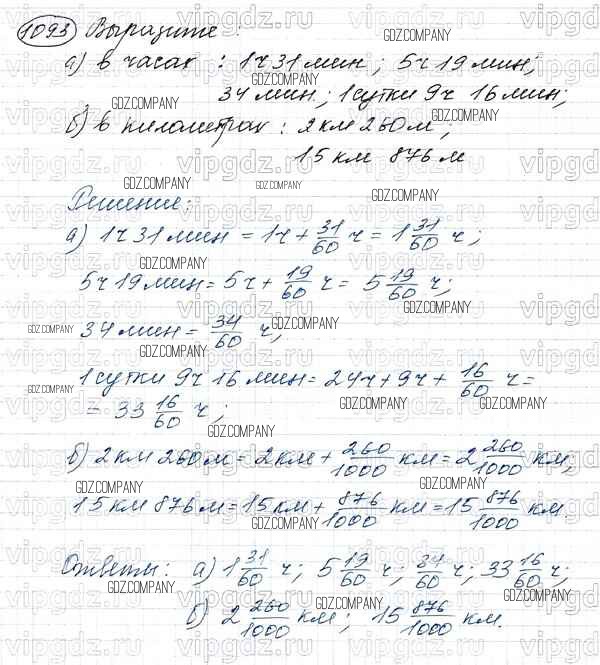 1093 Выразите :
а) в часах : 1ч 31 мин ; 5ч 19 мин ;
34 мин ; 1 сутки 9ч 16 мин ;
б) в километрах : 2 км 260 м ;
15 км 876 м
Решение:
а) 1ч 31 мин = 1ч + 31/60 ч = 1 31/60 ч ;
5ч 19 мин = 5ч + 19/60 ч = 5 19/60 ч ;
34 мин = 34/60 ч ;
1 сутки 9ч 16 мин = 24ч + 9ч + 16/60 ч =
= 33 16/60 ч ;
б) 2 км 260 м = 2 км + 260/1000 км = 2 260/1000 км ;
15 км 876 м = 15 км + 876/1000 км = 15 876/1000 км
Ответы : а) 1 31/60 ч ; 5 19/60 ч ; 34/60 ч ; 33 16/60 ч ;
б) 2 260/1000 км ; 15 876/1000 км.
vipgdz.ru
GDZ.COMPANY